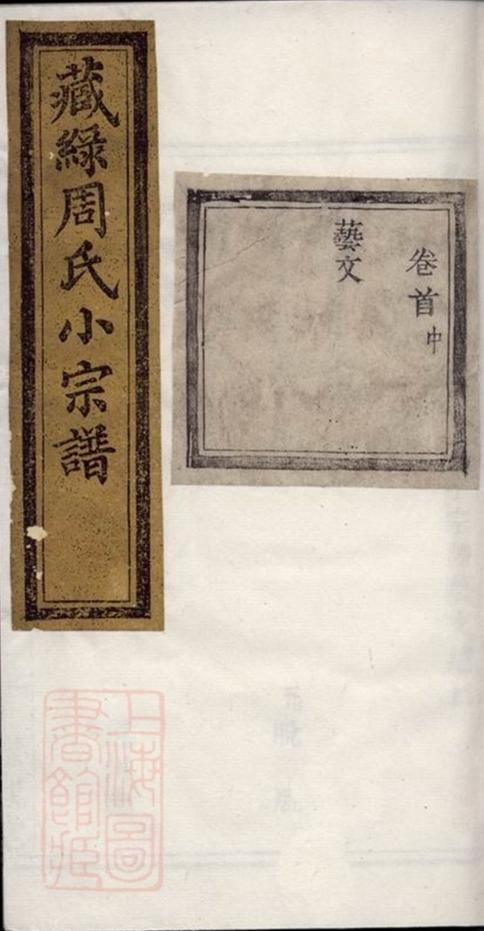 藏綠周氏小宗譜
卷首中
藝文
上海圖
書館藏